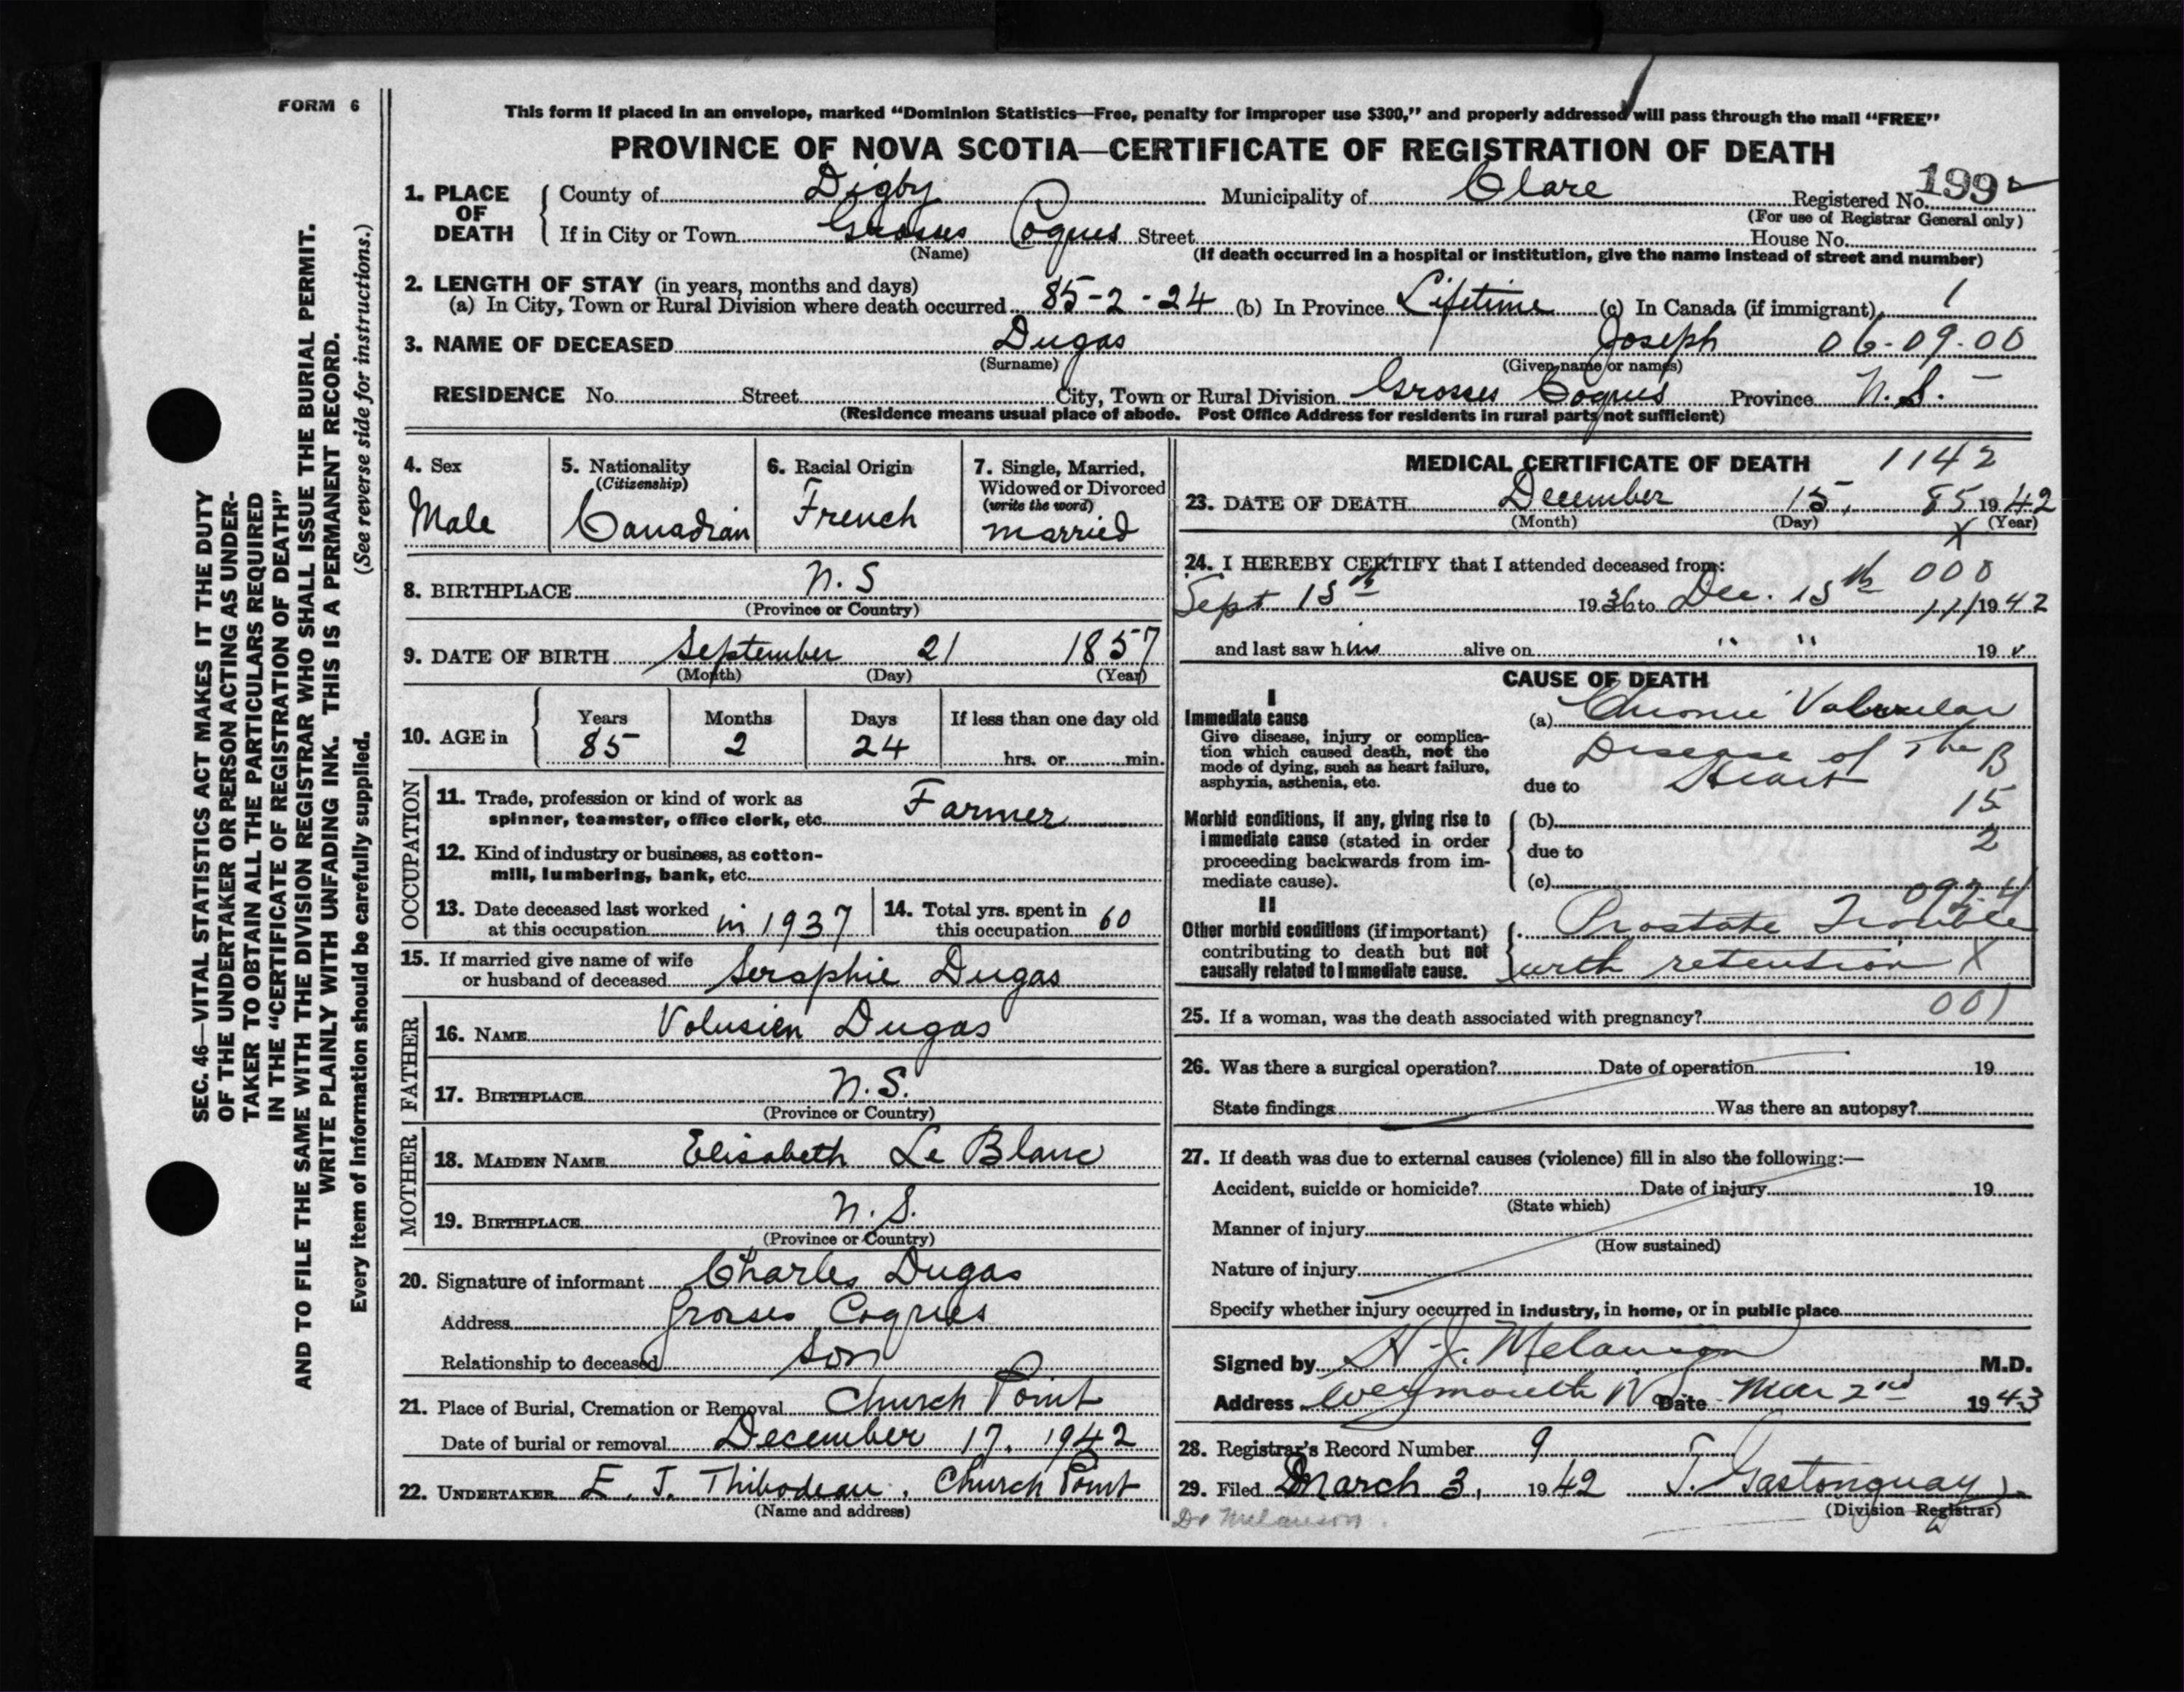 FORM 6
This form if placed in an envelope, marked “Dominion Statistics—Free, penalty for improper use $300,” and properly addressed will pass through the mail “FREE”
PROVINCE OF NOVA SCOTIA—CERTIFICATE OF REGISTRATION OF DEATH
1. PLACE OF DEATH County of Digby Municipality of Clare Registered No. 199
(For use of Registrar General only)
If in City or Town Grosses Coques Street House No.
(Name) (If death occurred in a hospital or institution, give the name instead of street and number)
2. LENGTH OF STAY (in years, months and days)
(a) In City, Town or Rural Division where death occurred 85-2-24 (b) In Province Lifetime (c) In Canada (if immigrant) 1
3. NAME OF DECEASED Dugas Joseph 06-09-00
(Surname) (Given name or names)
RESIDENCE No. Street City, Town or Rural Division Grosses Coques Province N.S.
(Residence means usual place of abode. Post Office Address for residents in rural parts not sufficient)
4. Sex Male
5. Nationality (Citizenship) Canadian
6. Racial Origin French
7. Single, Married, Widowed or Divorced (write the word) married
8. BIRTHPLACE N.S
(Province or Country)
9. DATE OF BIRTH September 21 1857
(Month) (Day) (Year)
10. AGE in Years 85 Months 2 Days 24 If less than one day old hrs. or min.
OCCUPATION
11. Trade, profession or kind of work as spinner, teamster, office clerk, etc. Farmer
12. Kind of industry or business, as cotton-mill, lumbering, bank, etc.
13. Date deceased last worked at this occupation in 1937
14. Total yrs. spent in this occupation 60
15. If married give name of wife or husband of deceased Seraphie Dugas
FATHER
16. NAME Volusien Dugas
17. BIRTHPLACE N.S.
(Province or Country)
MOTHER
18. MAIDEN NAME Elisabeth Le Blanc
19. BIRTHPLACE N.S.
(Province or Country)
20. Signature of informant Charles Dugas
Address Grosses Coques
Relationship to deceased Son
21. Place of Burial, Cremation or Removal Church Point
Date of burial or removal December 17, 1942
22. UNDERTAKER E. J. Thibodeau, Church Point
(Name and address)
MEDICAL CERTIFICATE OF DEATH 1142
23. DATE OF DEATH December 15, 85 1942
(Month) (Day) (Year)
X
24. I HEREBY CERTIFY that I attended deceased from: 000
Sept 15th 1936 to Dec. 15th 111 1942
and last saw him alive on " " 19
CAUSE OF DEATH
I
Immediate cause
Give disease, injury or complication which caused death, not the mode of dying, such as heart failure, asphyxia, asthenia, etc.
(a) Chronic Valvular
Disease of The B
due to Heart
15
Morbid conditions, if any, giving rise to immediate cause (stated in order proceeding backwards from immediate cause).
(b)
2
due to
(c)
092.4
II
Other morbid conditions (if important) contributing to death but not causally related to immediate cause.
Prostate Trouble
with retention X
25. If a woman, was the death associated with pregnancy? 001
26. Was there a surgical operation? Date of operation 19
State findings Was there an autopsy?
27. If death was due to external causes (violence) fill in also the following:—
Accident, suicide or homicide? Date of injury 19
(State which)
Manner of injury
(How sustained)
Nature of injury
Specify whether injury occurred in industry, in home, or in public place
Signed by H. J. Melanson M.D.
Address Weymouth N Date Mar 2nd 1943
28. Registrar's Record Number 9
29. Filed March 3, 1942 J. Gastonguay
(Division Registrar)
Dr Melanson.
SEC. 46—VITAL STATISTICS ACT MAKES IT THE DUTY
OF THE UNDERTAKER OR PERSON ACTING AS UNDER-
TAKER TO OBTAIN ALL THE PARTICULARS REQUIRED
IN THE “CERTIFICATE OF REGISTRATION OF DEATH”
AND TO FILE THE SAME WITH THE DIVISION REGISTRAR WHO SHALL ISSUE THE BURIAL PERMIT.
WRITE PLAINLY WITH UNFADING INK. THIS IS A PERMANENT RECORD.
Every item of information should be carefully supplied. (See reverse side for instructions.)